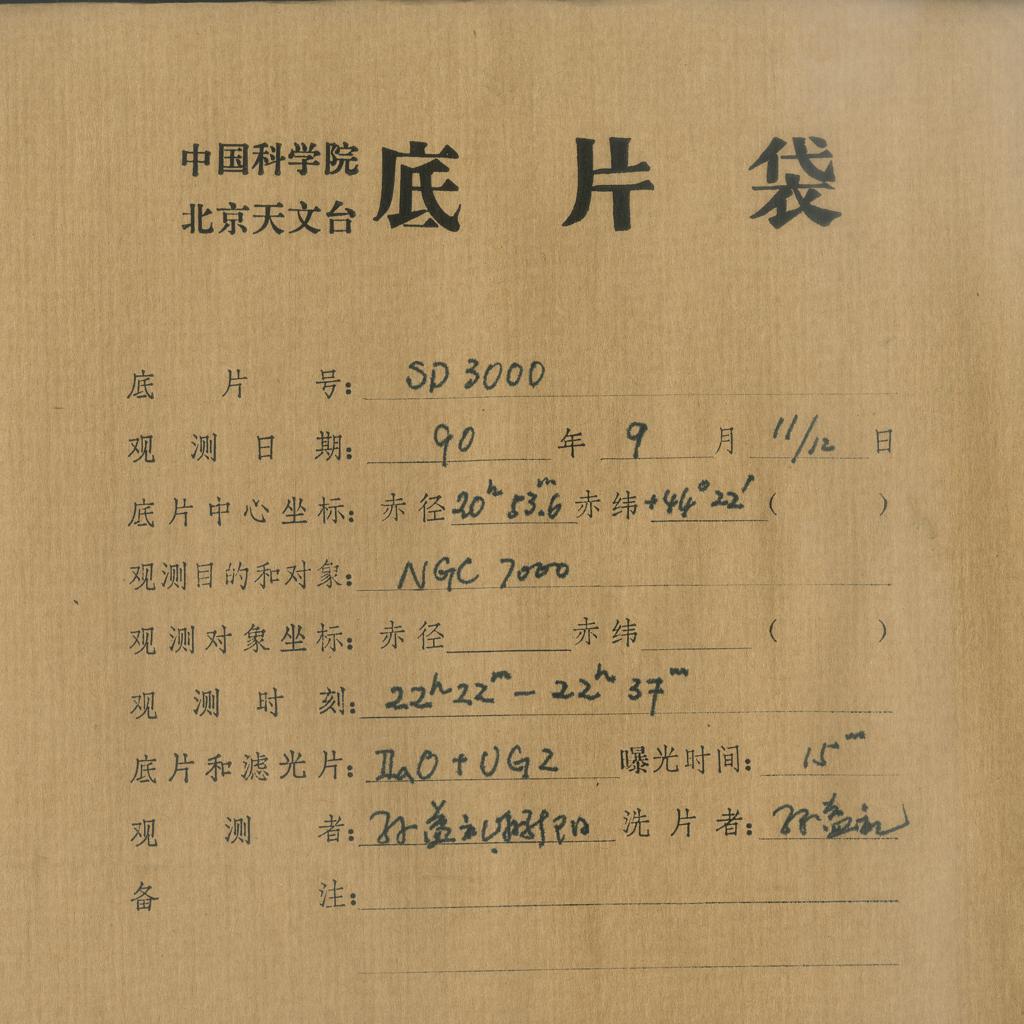 中国科学院
北京天文台
底片袋
底片号：SD 3000
观测日期：90年9月11/12日
底片中心坐标：赤径20h 53m.6 赤纬+44°22′（ ）
观测目的和对象：NGC 7000
观测对象坐标：赤径 赤纬 （ ）
观测时刻：22h22m－22h37m
底片和滤光片：IIaO + UG2 曝光时间：15m
观测者：孙益礼 洗片者：孙益礼
备注：